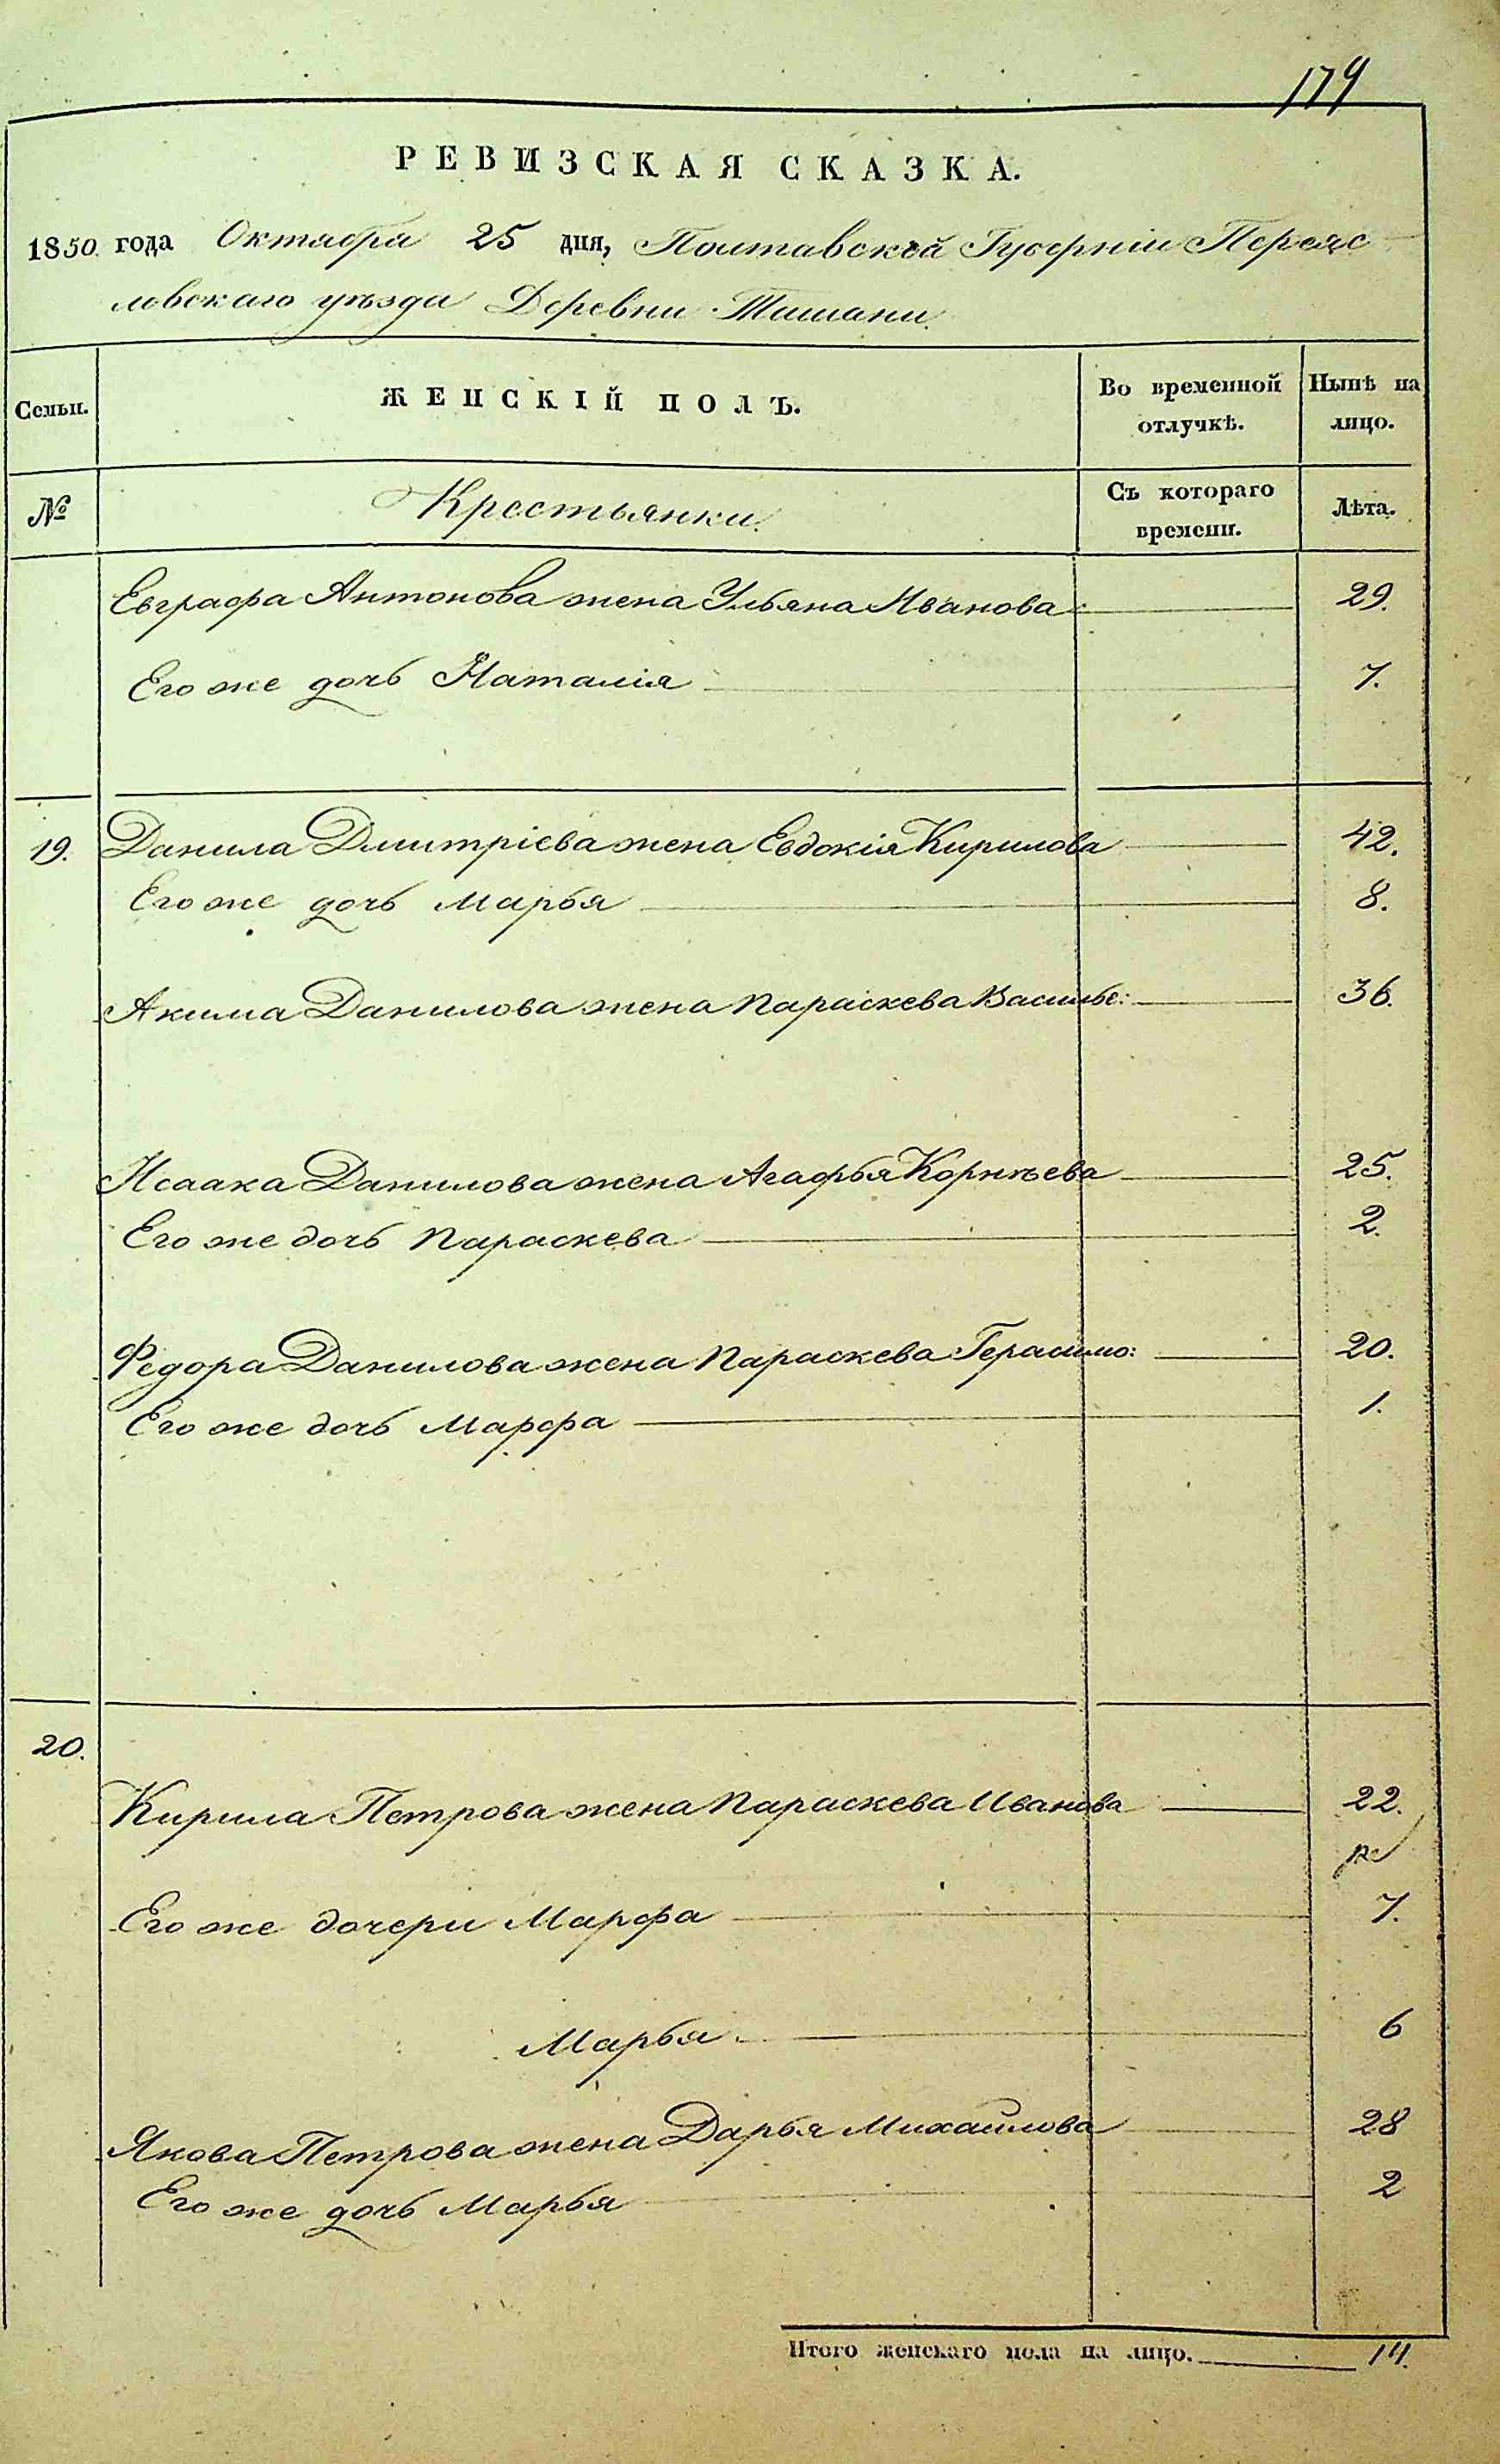 179
РЕВИЗСКАЯ СКАЗКА.
1850 года Октября 25 дня, Полтавской Губерніи Переяс
ловскаго уѣзда Деревни Ташани
Семьи. ЖЕНСКІЙ ПОЛЪ. Во временной отлучкѣ. Нынѣ на лицо.
№ Крестьянки. Съ котораго времени. Лѣта.
Евграфа Антонова жена Ульяна Иванова 29.
Его же дочь Наталія 7.
19. Данила Дмитріева жена Евдокія Кирилова 42.
Его же дочь Марья 8.
Акима Данилова жена Параскева Василье: 36.
Исаака Данилова жена Агафья Корнѣева 25.
Его же дочь Параскева 2.
Федора Данилова жена Параскева Герасимо: 20.
Его же дочь Марфа 1.
20.
Кирила Петрова жена Параскева Иванова 22.
Его же дочери Марфа 7.
Марья 6
Якова Петрова жена Дарья Михайлова 28
Его же дочь Марья 2
Итого женскаго пола на лицо. 14.